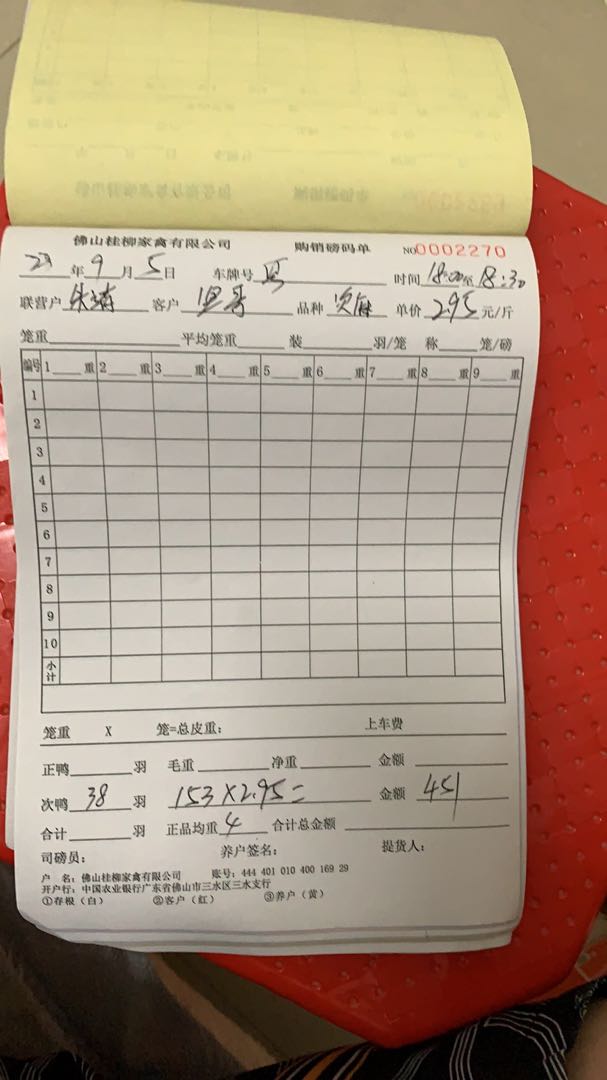 佛山桂柳家禽有限公司 购销磅码单 NO0002270
23年9月5日 车牌号 时间18:00至18:30
联营户 客户 品种 单价2.95元/斤
笼重 平均笼重 装 羽/笼 称 笼/磅
编号 1 重 2 重 3 重 4 重 5 重 6 重 7 重 8 重 9 重
1
2
3
4
5
6
7
8
9
10
小计
笼重 X 笼=总皮重: 上车费
正鸭 羽 毛重 净重 金额
次鸭 38 羽 153×2.95= 金额 451
合计 羽 正品均重 4 合计总金额
司磅员: 养户签名: 提货人:
户 名:佛山桂柳家禽有限公司 账号:444 401 010 400 169 29
开户行:中国农业银行广东省佛山市三水区三水支行
①存根(白) ②客户(红) ③养户(黄)